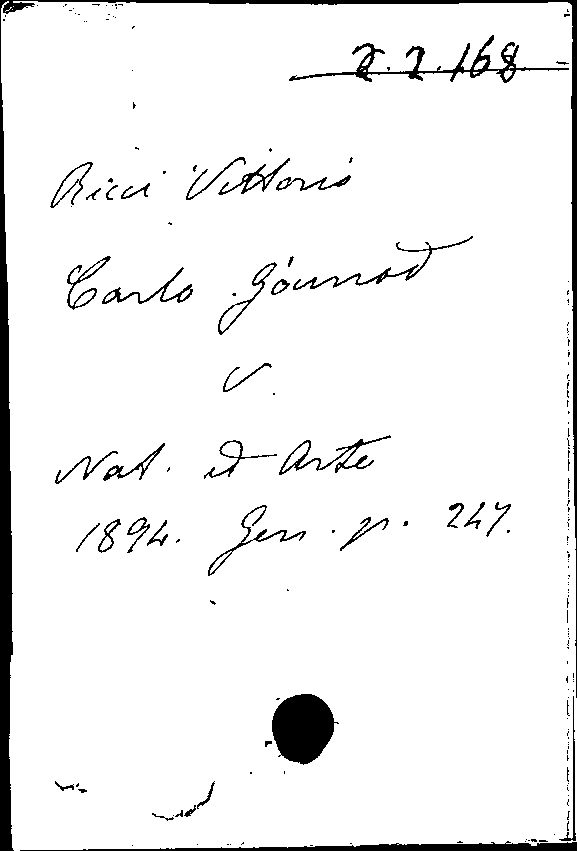 2.2.168
Ricci Vittorio
Carlo Gounod
V.
Nat. ed Arte
1894. Gen. p. 247.